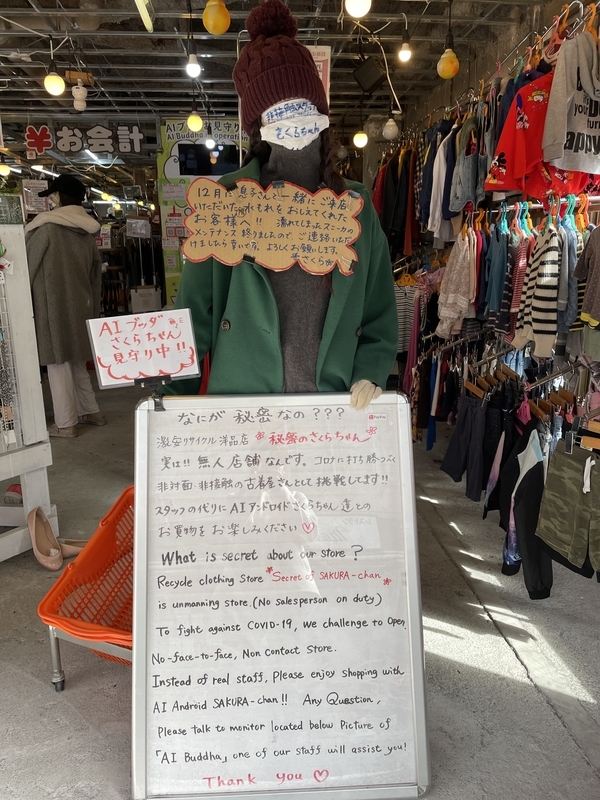 非接触スタッフ
さくらちゃん
¥お会計
AIブッダ見守り
AI Buddha operation
12月に息子さんと一緒にご来店
いただいた水もれをおしえてくれた
お客様へ!! 濡れてしまったスニーカの
メンテナンス終りましたので、ご連絡いただ
けましたら幸いです。よろしくお願いします。
さくら
AIブッダ
さくらちゃん
見守り中!!
なにが秘密なの???
激安リサイクル洋品店 秘密のさくらちゃん
実は!! 無人店舗なんです。コロナに打ち勝つべく
非対面・非接触の古着屋さんとして挑戦してます!!
スタッフの代りにAIアンドロイドさくらちゃん達との
お買物をお楽しみください♡
What is secret about our store?
Recycle clothing Store *Secret of SAKURA-chan*
is unmanning store. (No salesperson on duty)
To fight against COVID-19, we challenge to Open,
No-face-to-face, Non contact store.
Instead of real staff, Please enjoy shopping with
AI Android SAKURA-chan!! Any Question,
Please talk to monitor located below Picture of
「AI Buddha」 one of our staff will assist you!
Thank you ♡